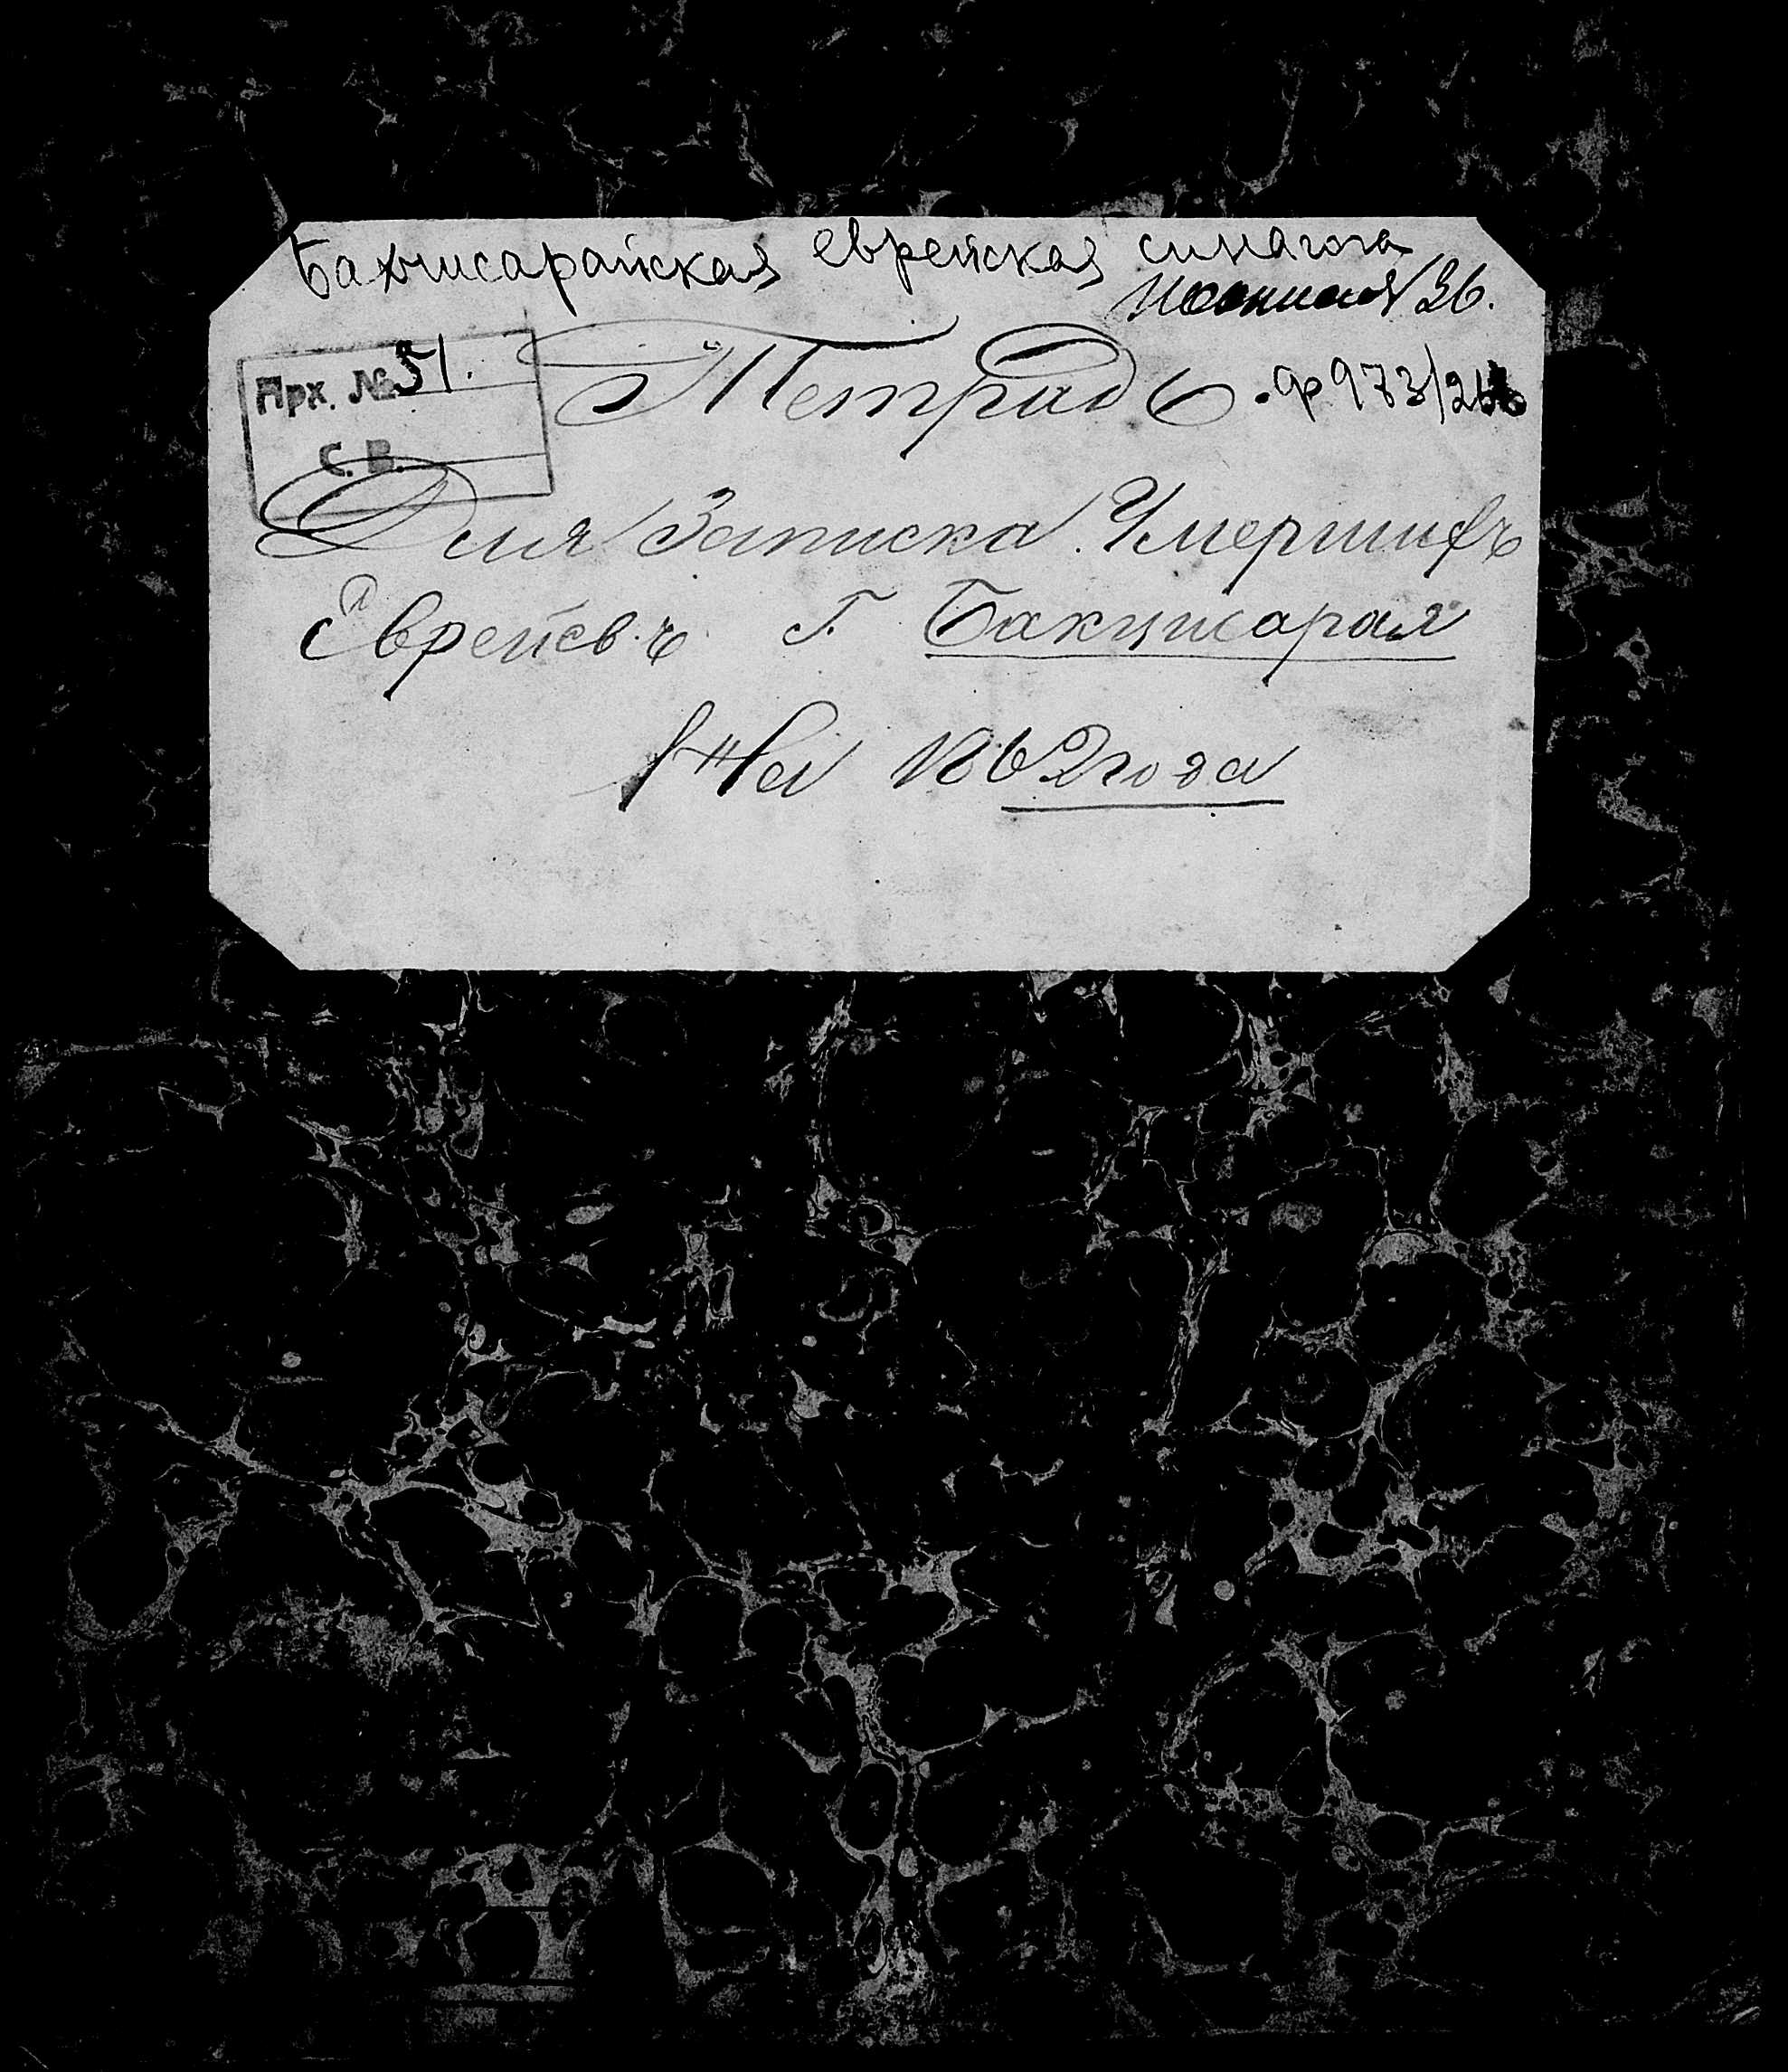 Бахчисарайская еврейская синагога
36.
Прх. № 51.
С. В.
Тетрадь
ф 973/26
Для Записка Умершифъ
Еврейевъ Г. Бакцисарая
1862 года